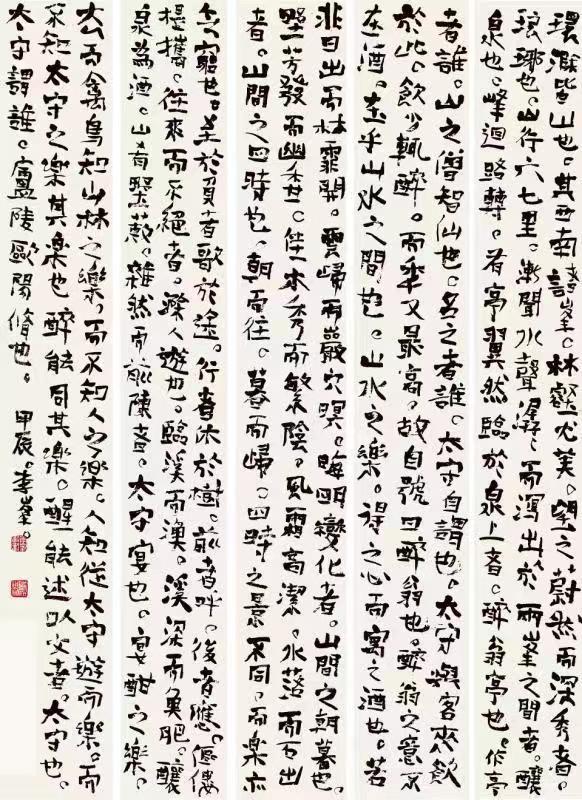 環滁皆山也。其西南諸峯。林壑尤美。望之蔚然而深秀者。
琅琊也。山行六七里。漸聞水聲潺潺而瀉出於兩峯之間者。釀
泉也。峰迴路轉。有亭翼然臨於泉上者。醉翁亭也。作亭
者誰。山之僧智仙也。名之者誰。太守自謂也。太守與客來飲
於此。飲少輒醉。而年又最高。故自號曰醉翁也。醉翁之意不
在酒。在乎山水之間也。山水之樂。得之心而寓之酒也。若
非日出而林霏開。雲歸而巖穴暝。晦明變化者。山間之朝暮也。
野芳發而幽香。佳木秀而繁陰。風霜高潔。水落而石出
者。山間之四時也。朝而往。暮而歸。四時之景不同。而樂亦
無窮也。至於負者歌於途。行者休於樹。前者呼。後者應。傴僂
提攜。往來而不絕者。滁人遊也。臨溪而漁。溪深而魚肥。釀
泉為酒。山肴野蔌。雜然而前陳者。太守宴也。宴酣之樂。
去而禽鳥知山林之樂。而不知人之樂。人知從太守遊而樂。而
不知太守之樂其樂也 醉能同其樂。醒能述以文者。太守也。
太守謂誰。廬陵歐陽脩也。 甲辰。李峯。